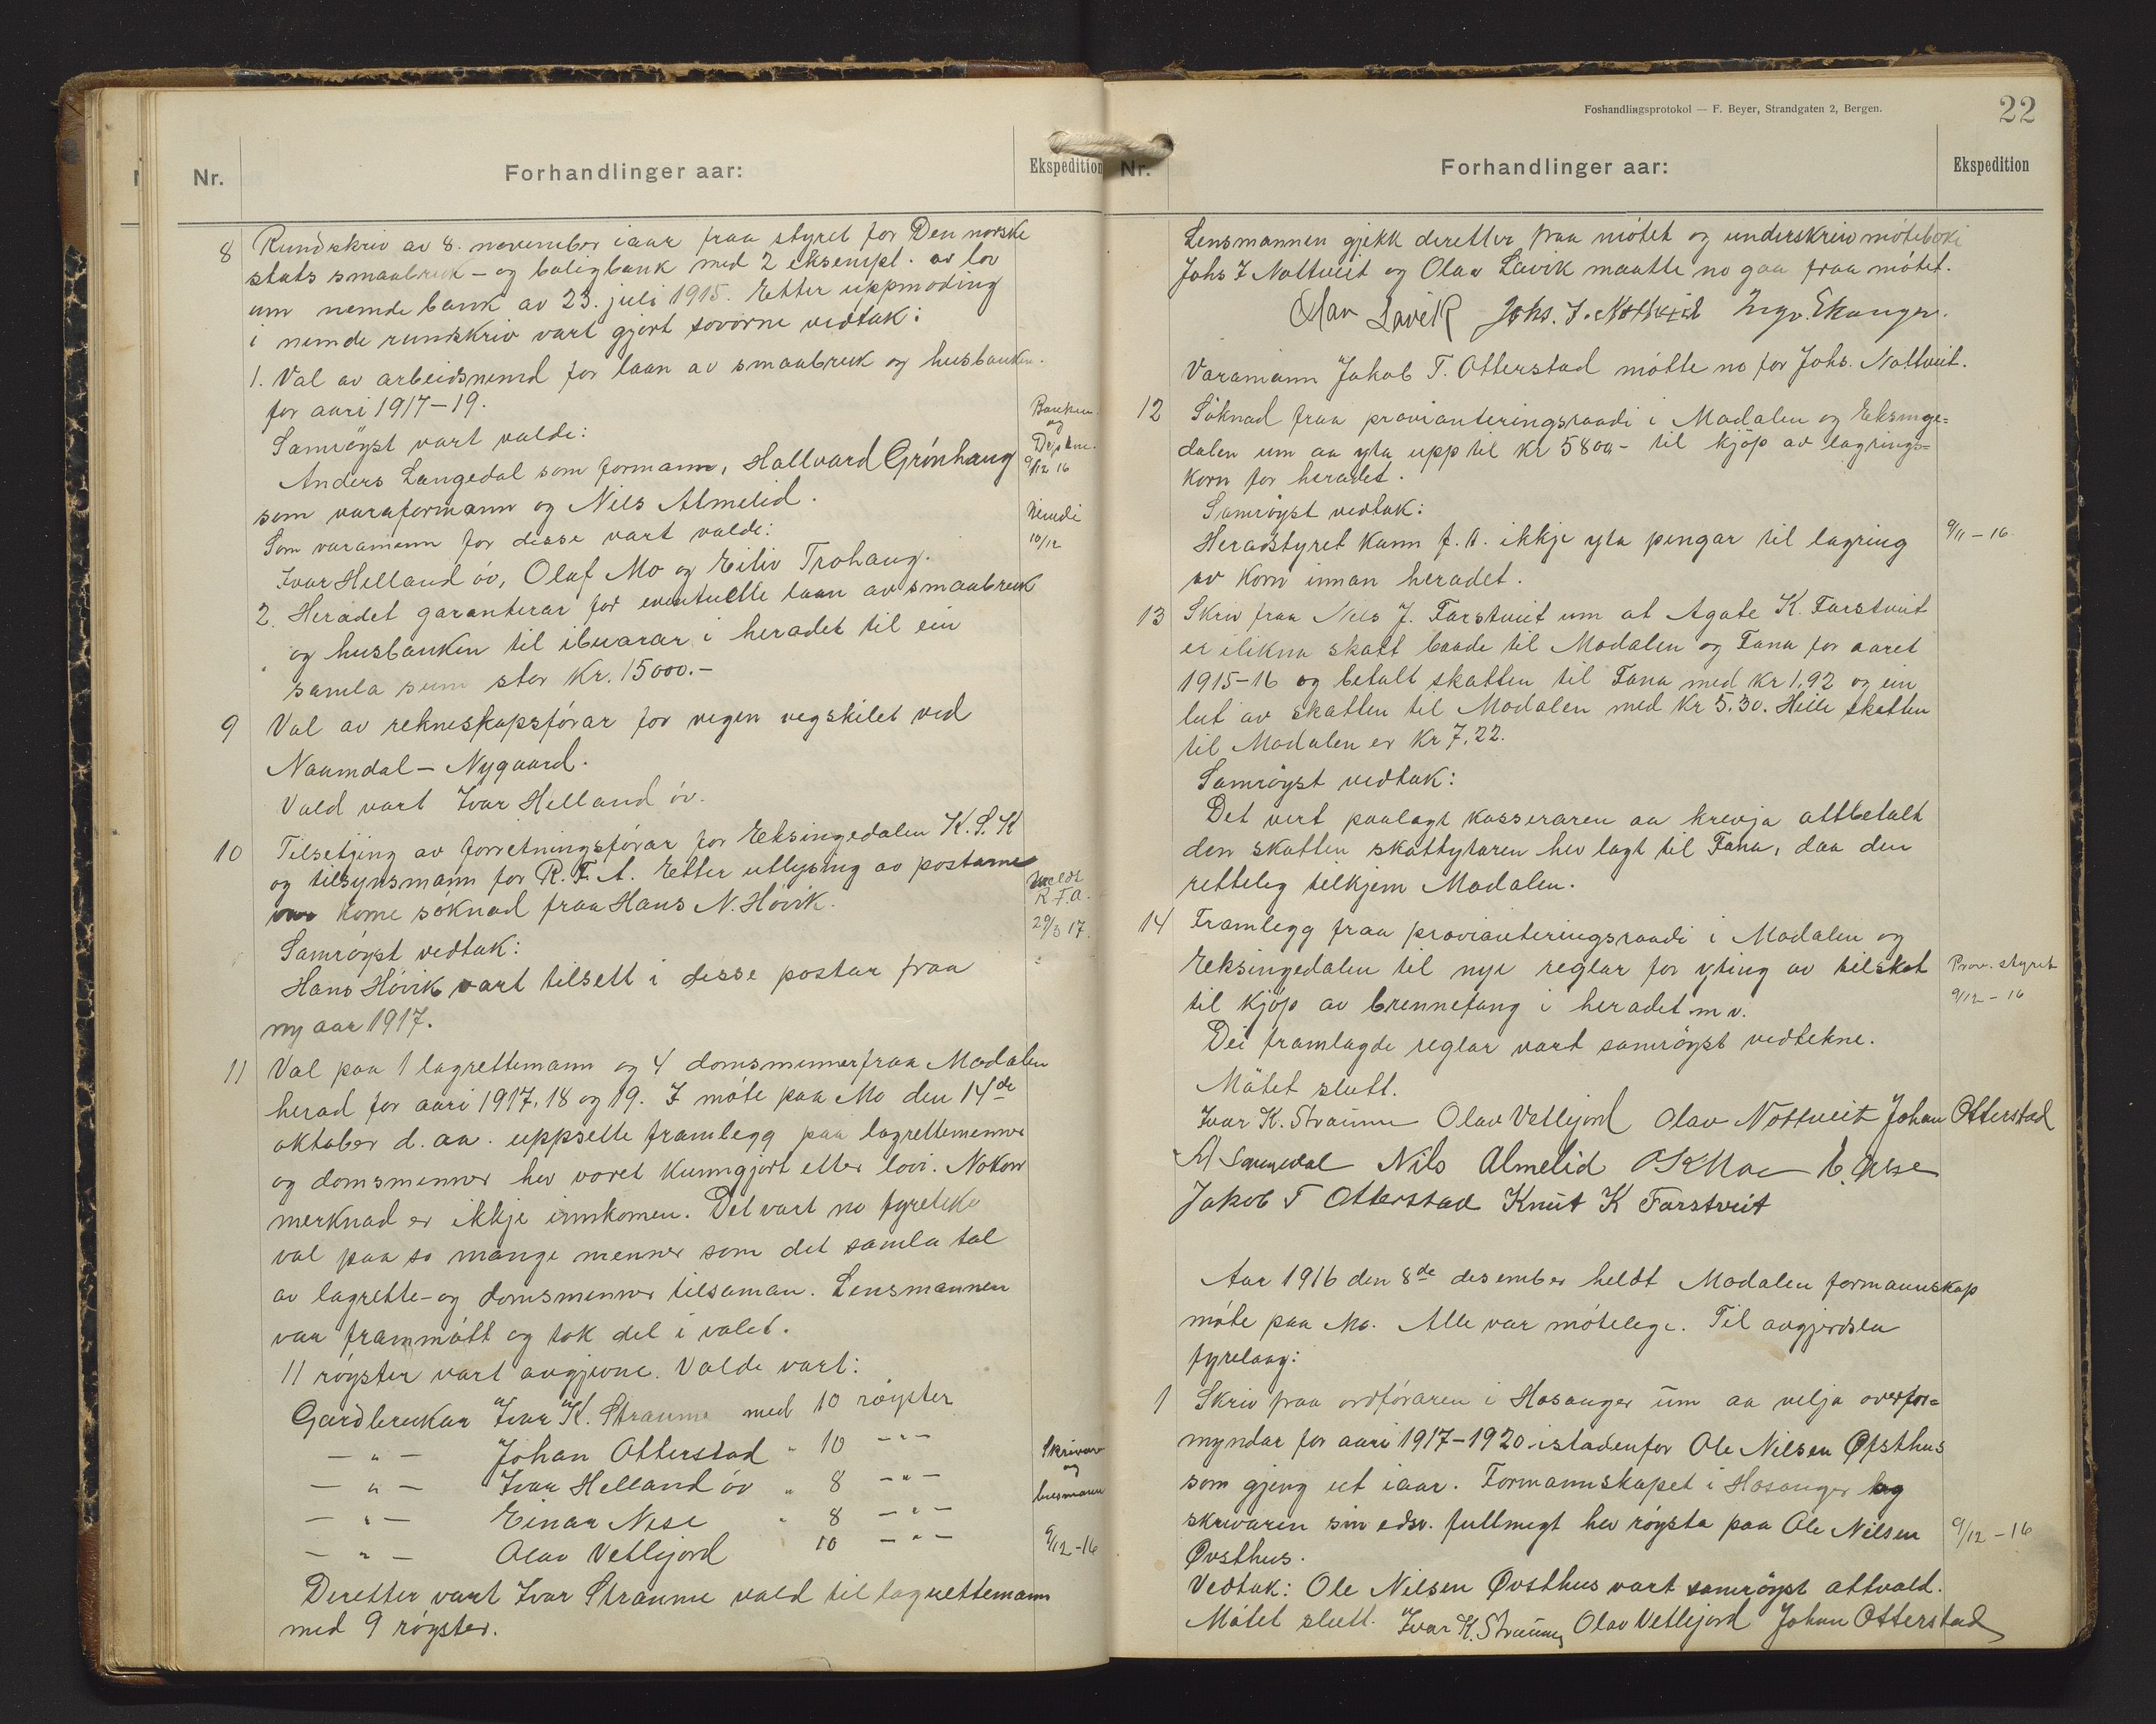 Nr.
Forhandlinger aar:
Ekspedition
8 Rundskriv av 8. november iaar fraa styret for Den norske
stats smaabruk- og boligbank med 2 eksempl. av lov
um nemde bank av 23. juli 1915. Etter uppmoding
i nemde rundskriv vart gjort sovorne vedtak:
1. Val av arbeidsnemd for laan av smaabruk og husbanken
for aari 1917-19.
Samröyst vart valde:
Banken
og
Anders Langedal som formann, Hallvard Grónhaug
9/12 16
som varaformann og Nils Almelid.
Nemdi
10/12
Som varamenn for desse vart valde:
Ivar Helland óv, Olaf Mo og Eiliv Trohaug.
2. Heradet garanterar for eventuelle laan av smaabruk
og husbanken til ibuarar i heradet til ein
samla sum stor Kr. 15000.-
9 Val av rekneskapsfórar for vegen vegskilet ved
Naamdal - Nygaard.
Vald vart Ivar Helland óv.
10 Tilsetjing av forretningsfórar for Eksingedalen K.S.K
og tilsynsmann for R.T.A. Etter utlysing av postarne
var kome sóknad fraa Hans N. Hóvik.
Meldt
R.T.A.
29/3 17.
Samróyst vedtak:
Hans Hóvik vart tilsett i desse postar fraa
ny aar 1917.
11 Val paa 1 lagrettemann og 4 domsmenner fraa Modalen
herad for aari 1917, 18 og 19. I móte paa Mo den 14de
oktober d. aa. uppsette framlegg paa lagrettemenner
og domsmenner hev voret kunngjort etter lovi. Nokor
merknad er ikkje innkomen. Det vart no fyreteke
val paa so mange menner som det samla tal
av lagrette- og domsmenner tilsaman. Lensmannen
var frammótt og tok del i valet.
11 róyster vart avgjevne. Valde vart:
Gardbrukar Ivar K. Straume med 10 róyster
— " — Johan Otterstad " 10 — " —
— " — Ivar Helland óv " 8 — " —
— " — Einar Nese " 8 — " —
— " — Olav Vetlejord 10 — " —
Skrivar
og
lensmann
9/12-16
Deretter vart Ivar Straume vald til lagrettemann
med 9 róyster.
Foshandlingsprotokol — F. Beyer, Strandgaten 2, Bergen.
22
Nr.
Forhandlinger aar:
Ekspedition
Lensmannen gjekk deretter fraa mótet og underskreiv móteboki
Johs I Nottveit og Olav Lavik maatte no gaa fraa mótet.
Olav Lavik Johs. I. Nottveit Ingv. Ekanger.
Varamann Jakob T. Otterstad mótte no for Johs. Nottveit.
12 Sóknad fraa provianteringsraadi i Modalen og Eksinge=
dalen um aa yta upp til kr 5800- til kjóp av lagrings=
korn for heradet.
Samróyst vedtak:
Heradstyret kann f. t. ikkje yta pengar til lagring
av korn innan heradet.
9/11-16.
13 Skriv fraa Nils J. Farstveit um at Agate K. Farstveit
er ilikna skatt baade til Modalen og Fana for aaret
1915-16 og betalt skatten til Fana med kr 1,92 og ein
lut av skatten til Modalen med kr 5.30. Heile skatten
til Modalen er kr 7,22.
Samróyst vedtak:
Det vert paalagt kasseraren aa krevja attbetalt
den skatten skattytaren hev lagt til Fana, daa den
rettelig tilkjem Modalen.
14 Framlegg fraa provianteringsraadi i Modalen og
Eksingedalen til nye reglar for yting av tilskot
til kjóp av brennefang i heradet m v.
Prov. styret
9/12-16
Dei framlagde reglar vart samróyst vedtekne.
Mótet slutt.
Ivar K. Straume Olav Vetlejord Olav Nottveit Johan Otterstad
A Langedal Nils Almelid O K Mo E. Nese
Jakob T Otterstad Knut K Farstveit
Aar 1916 den 8de desember heldt Modalen formannskap
móte paa Mo. Alle var mótelege. Til avgjerdsla
fyrelaag:
1 Skriv fraa ordfóraren i Hosanger um aa velja overfor=
myndar for aari 1917-1920 istadenfor Ole Nilsen Øfsthus
som gjeng ut iaar. Formannskapet i Hosanger og
skrivaren sin edsv. fullmegt hev róysta paa Ole Nilsen
Øvsthus.
9/12-16
Vedtak: Ole Nilsen Øvsthus vart samróyst attvald.
Mótet slutt. Ivar K. Straume Olav Vetlejord Johan Otterstad